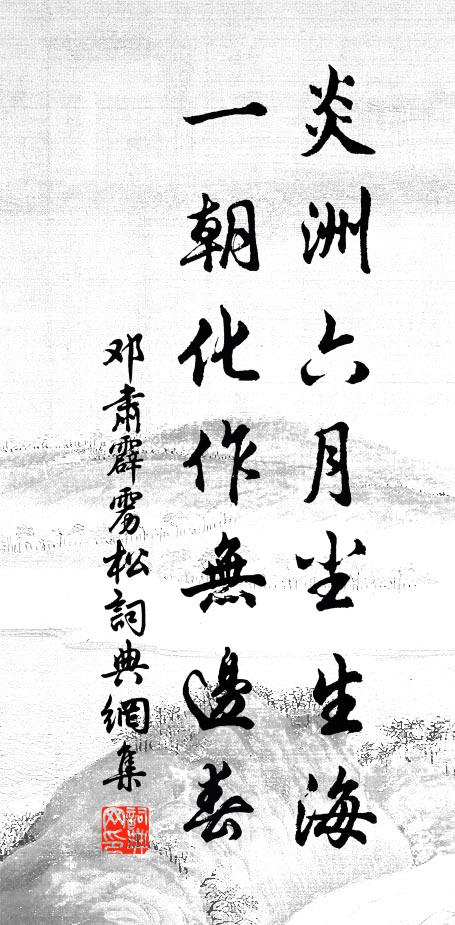 炎洲六月尘生海
一朝化作無邊春
邓肅霹雳松詞典網集